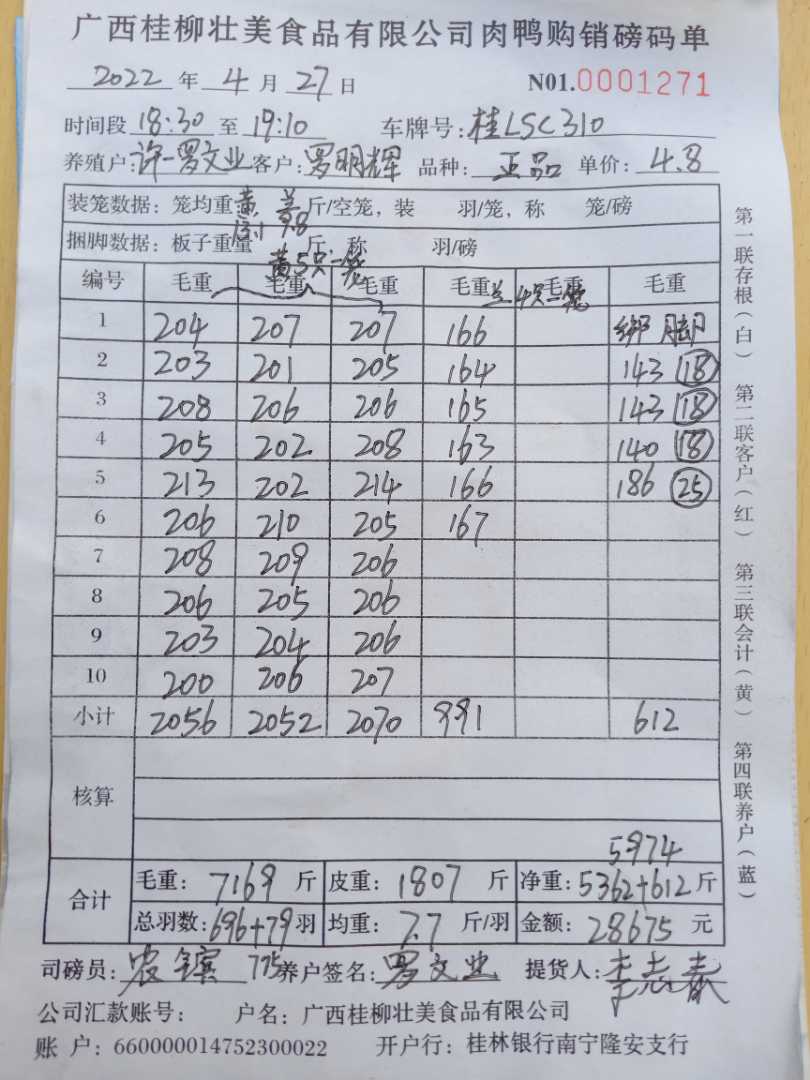 广西桂柳壮美食品有限公司肉鸭购销磅码单
2022 年 4 月 27 日 N01.0001271
时间段 18:30 至 19:10 车牌号:桂LSC310
养殖户:许一罗文业 客户:罗明辉 品种: 正品 单价: 4.8
装笼数据: 笼均重 黄 兰 斤/空笼, 装 羽/笼, 称 笼/磅
13.1 9.8
捆脚数据: 板子重量 斤, 称 羽/磅
黄5只一笼
编号 毛重 毛重 毛重 毛重 毛重 毛重
兰4只一笼
1 204 207 207 166 绑脚
2 203 201 205 164 143 18
3 208 206 206 165 143 18
4 205 202 208 163 140 18
5 213 202 214 166 186 25
6 206 210 205 167
7 208 209 206
8 206 205 206
9 203 204 206
10 200 206 207
小计 2056 2052 2070 991 612
核算
5974
合计 毛重: 7169 斤 皮重: 1807 斤 净重: 5362+612 斤
总羽数: 696+79 羽 均重: 7.7 斤/羽 金额: 28675 元
司磅员: 农 775 养户签名: 罗文业 提货人: 李志春
公司汇款账号: 户名: 广西桂柳壮美食品有限公司
账 户: 660000014752300022 开户行: 桂林银行南宁隆安支行
第一联存根(白) 第二联客户(红) 第三联会计(黄) 第四联养户(蓝)